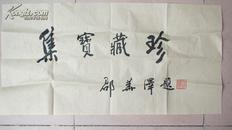 集寶藏珍
邵華澤題